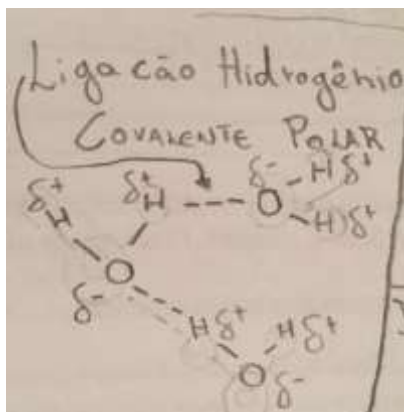 Ligação Hidrogênio
COVALENTE POLAR
δ+ H δ+ H --- O δ- H δ+
H δ+
O
δ-
H δ+ H δ+
O δ-